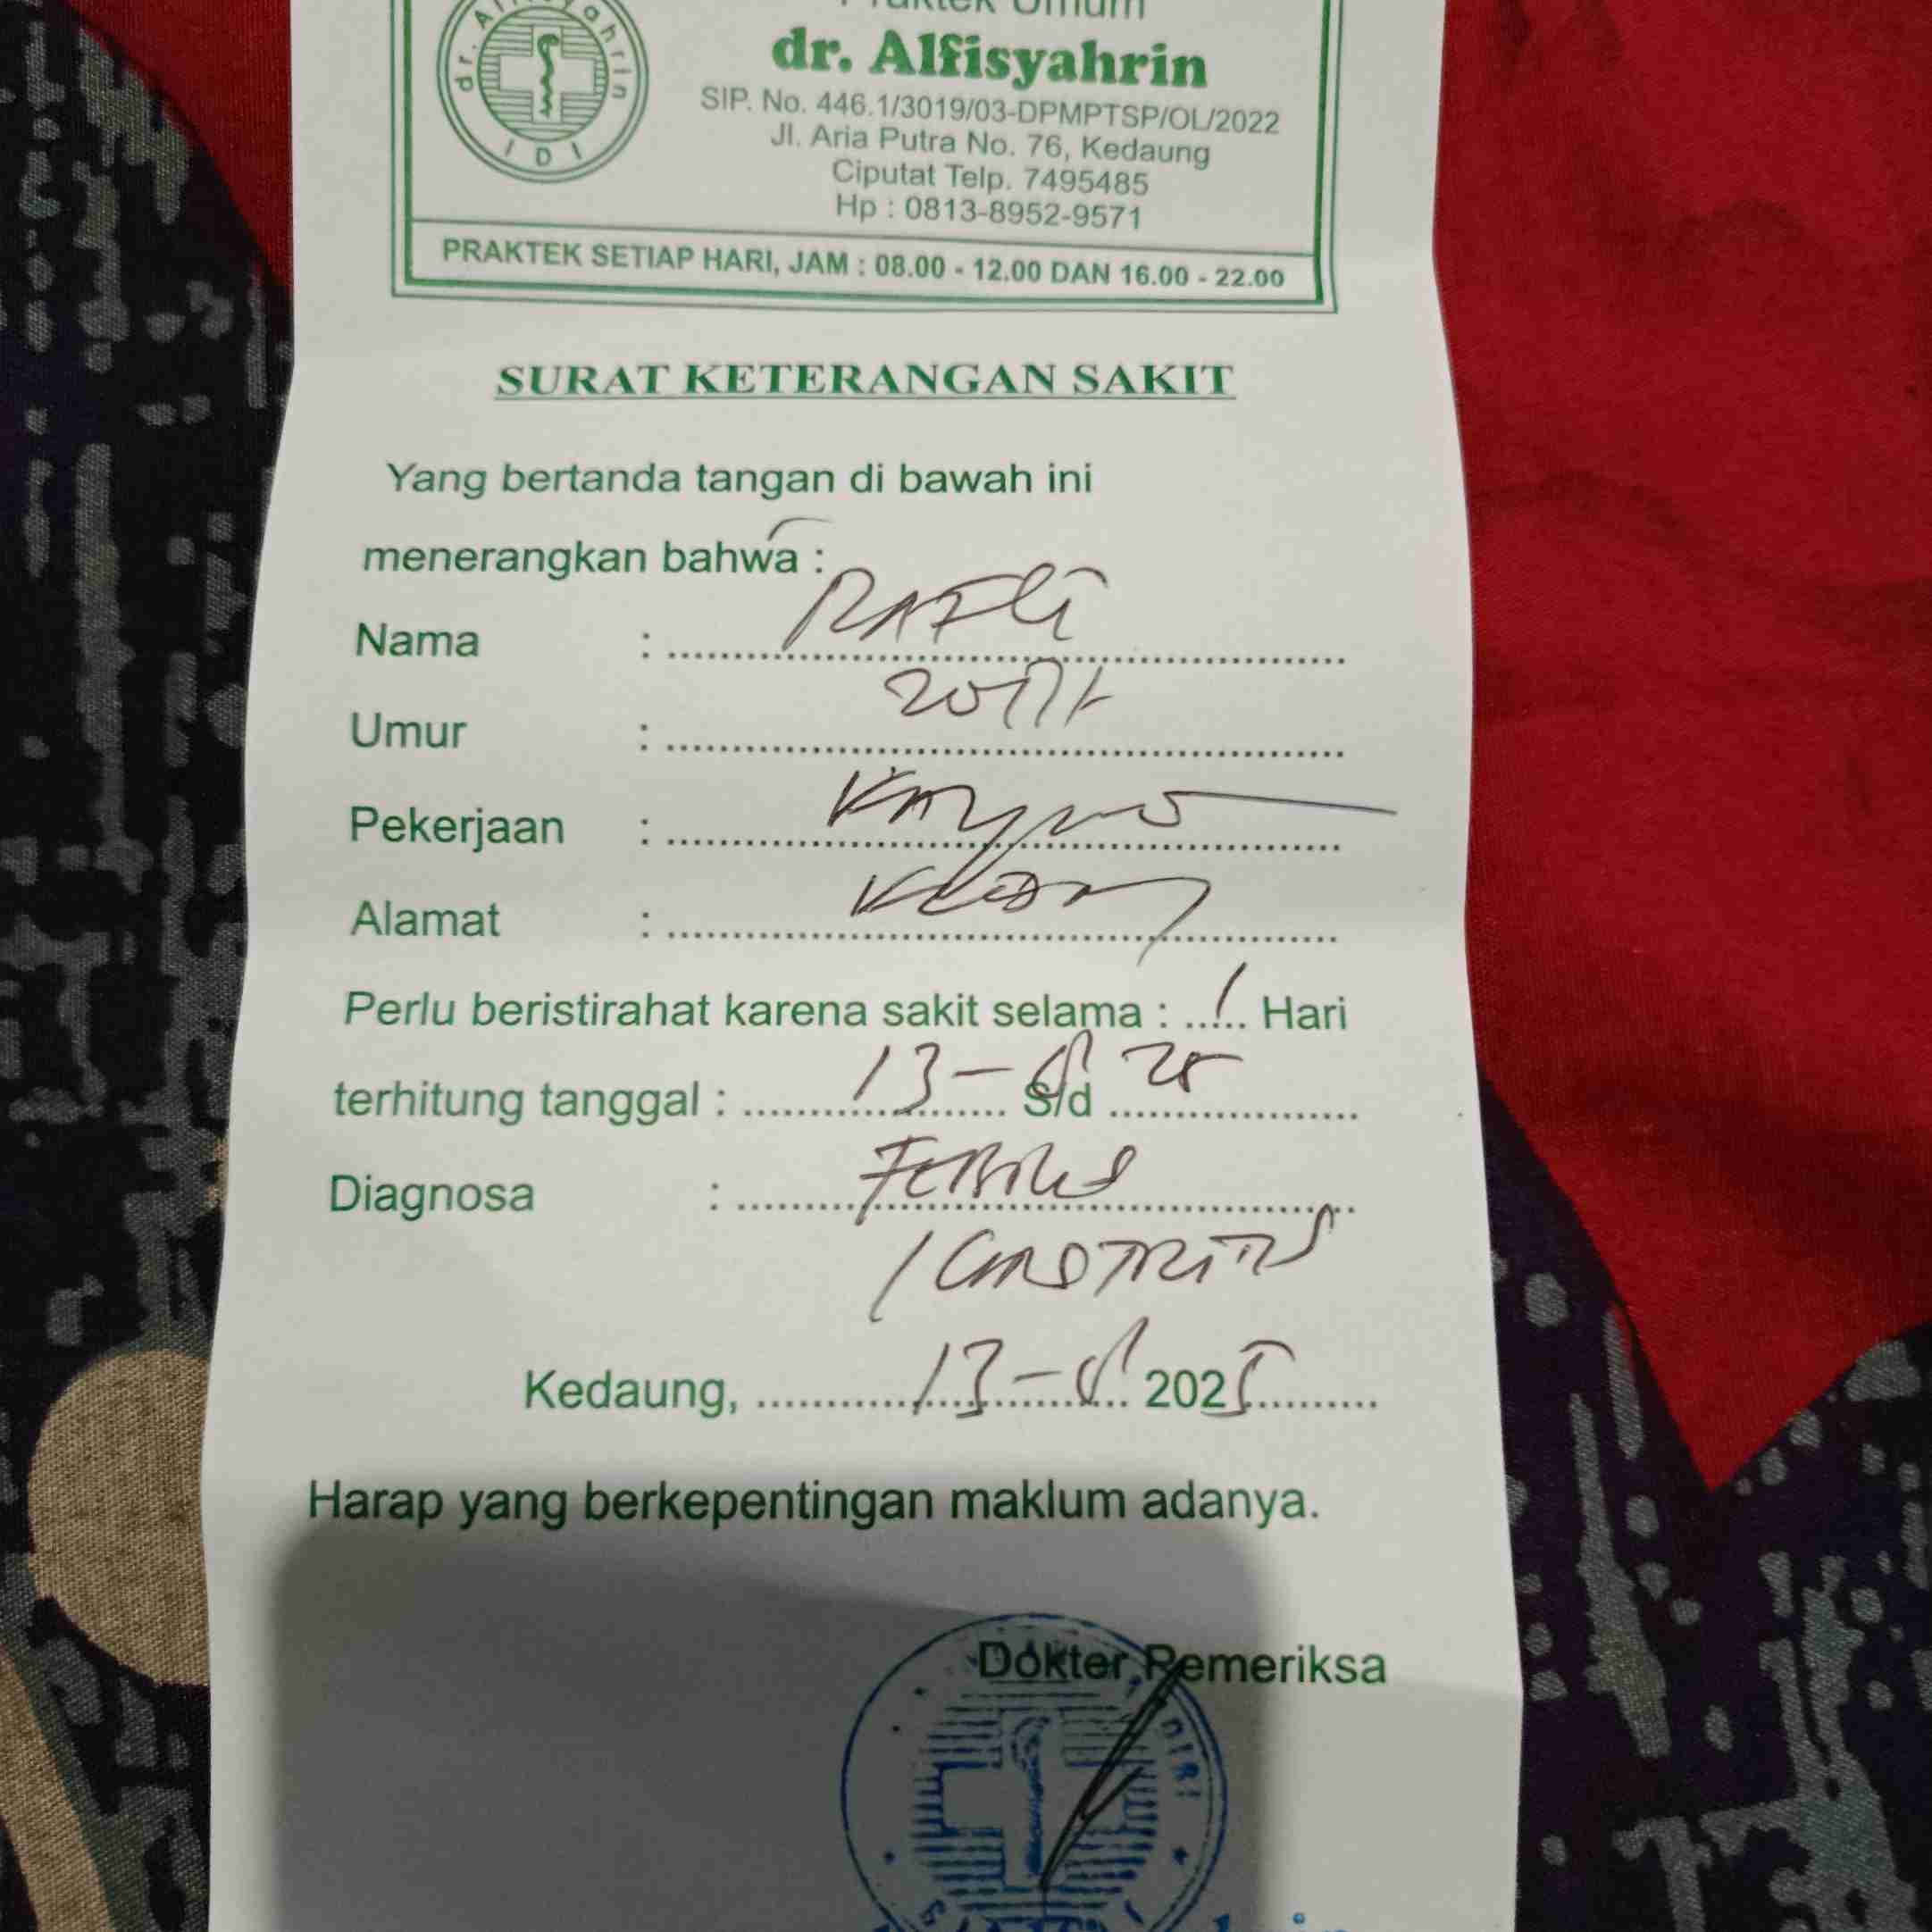 Praktek Umum
dr. Alfisyahrin
IDI
dr. Alfisyahrin
SIP. No. 446.1/3019/03-DPMPTSP/OL/2022
Jl. Aria Putra No. 76, Kedaung
Ciputat Telp. 7495485
Hp : 0813-8952-9571
PRAKTEK SETIAP HARI, JAM : 08.00 - 12.00 DAN 16.00 - 22.00
SURAT KETERANGAN SAKIT
Yang bertanda tangan di bawah ini
menerangkan bahwa :
Nama : RAFLi
Umur : 20
Pekerjaan :
Alamat :
Perlu beristirahat karena sakit selama : 1 Hari
terhitung tanggal : 13 - S/d 25
Diagnosa : FEBRIS
/ GASTRITIS
Kedaung, 13 - 2025
Harap yang berkepentingan maklum adanya.
Dokter Pemeriksa